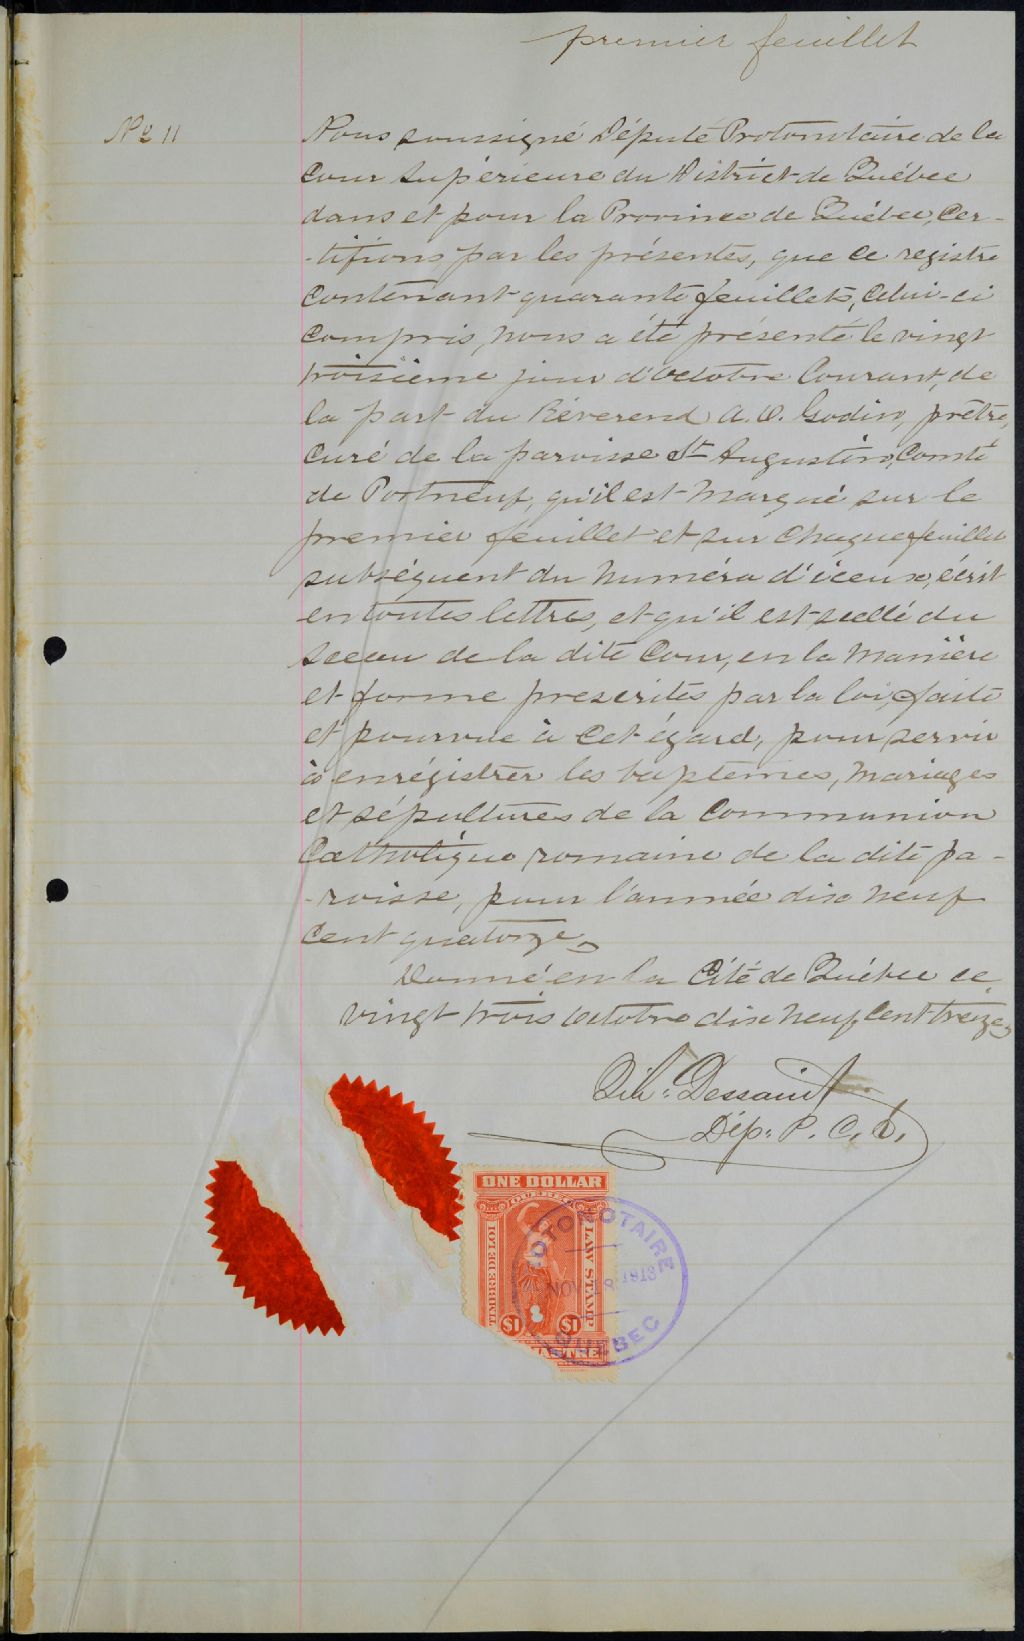 premier feuillet
No 11
Nous soussigné Député Protonotaire de la
Cour Supérieure du District de Québec
dans et pour la Province de Québec, Cer-
-tifions par les présentes, que ce registre
Contenant quarante feuillets, Celui-ci
Compris, nous a été présenté le vingt
troisième jour d'octobre Courant, de
la part du Révérend A. O. Godin, prêtre,
Curé de la paroisse St Augustin, Comté
de Portneuf, qu'il est marqué sur le
premier feuillet et sur chaque feuillet
subséquent du numéro d'iceux, écrit
en toutes lettres, et qu'il est scellé du
sceau de la dite Cour, en la manière
et forme prescrites par la loi, faite
et pourvue à cet égard, pour servir
à enrégistrer les baptêmes, mariages
et sépultures de la Communion
Catholique romaine de la dite pa-
-roisse, pour l'année dix neuf
Cent quatorze.
Donné en la Cité de Québec ce
vingt trois octobre dix neuf Cent treize,
Dessaint
Dép: P. C. S.
ONE DOLLAR
QUEBEC
TIMBRE DE LOI
LAW STAMP
$1 $1
ASTRE
OTONOTAIRE
NOV 18 1913
QUEBEC